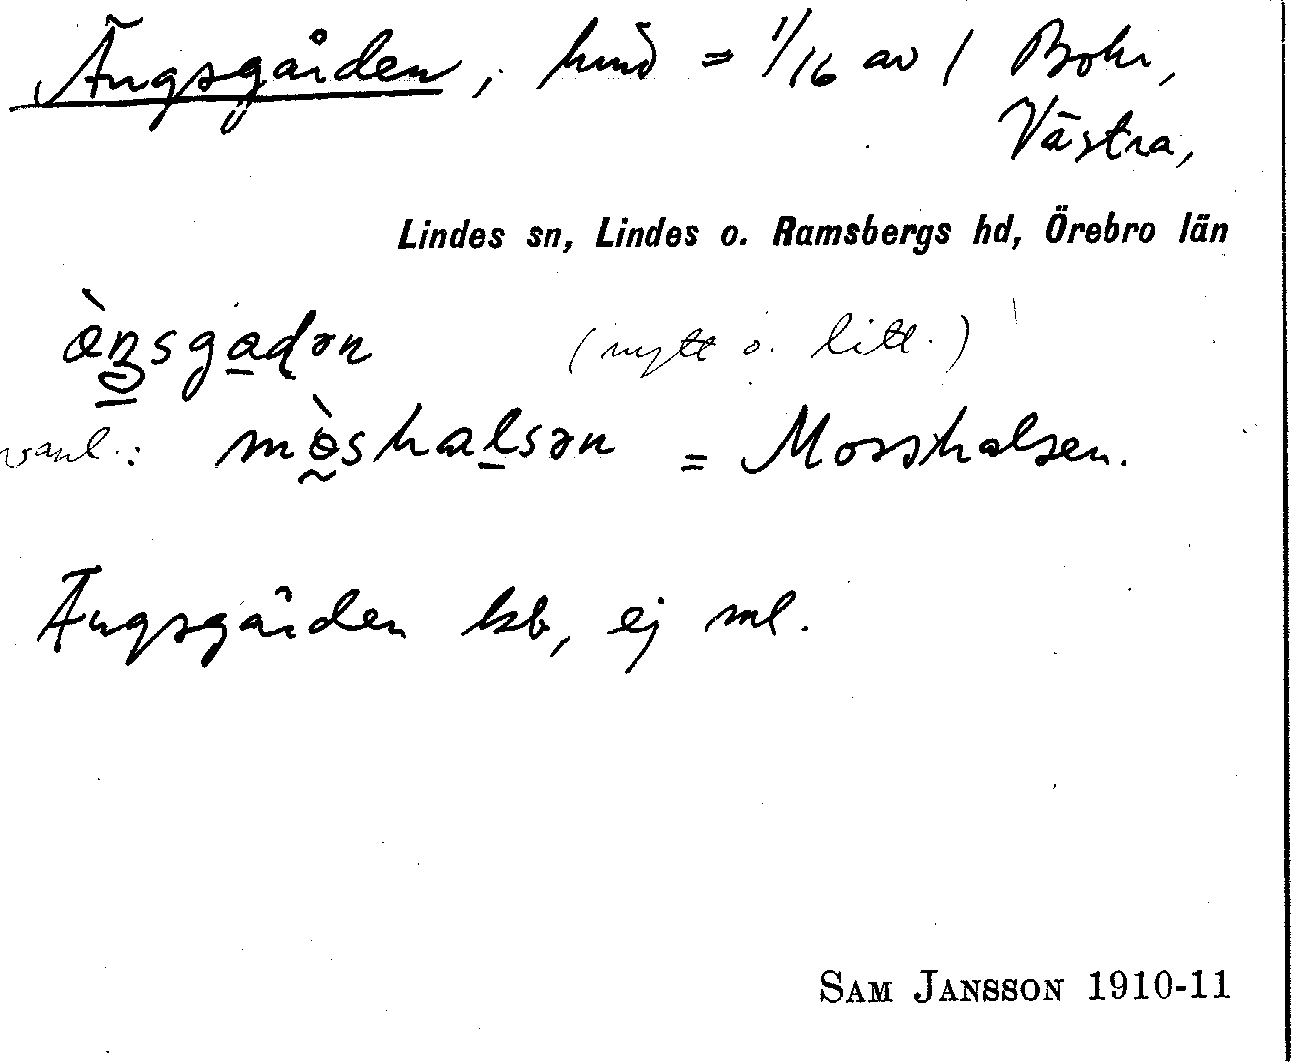 Ängsgården, hmd = 1/16 av 1 Bohr,
Västra,
Lindes sn, Lindes o. Ramsbergs hd, Örebro län
(nytt o. litt.)
vanl.: = Mosshalsen.
Ängsgården kb, ej ml.
SAM JANSSON 1910-11